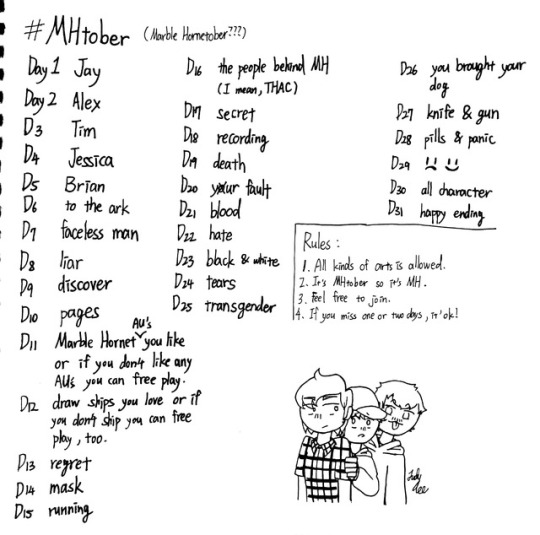 #MHtober (Marble Hornetober???)
Day 1 Jay
Day 2 Alex
D3 Tim
D4 Jessica
D5 Brian
D6 to the ark
D7 faceless man
D8 liar
D9 discover
D10 pages
D11 Marble Hornet AU's you like
or if you don't like any
AU's you can free play.
D12 draw ships you love or if
you don't ship you can free
play, too.
D13 regret
D14 mask
D15 running
D16 the people behind MH
(I mean, THAC)
D17 secret
D18 recording
D19 death
D20 your fault
D21 blood
D22 hate
D23 black & white
D24 tears
D25 transgender
D26 you brought your
dog
D27 knife & gun
D28 pills & panic
D29
D30 all character
D31 happy ending
Rules :
1. All kinds of arts is allowed.
2. It's MHtober so it's MH.
3. Feel free to join.
4. If you miss one or two days, it' ok!